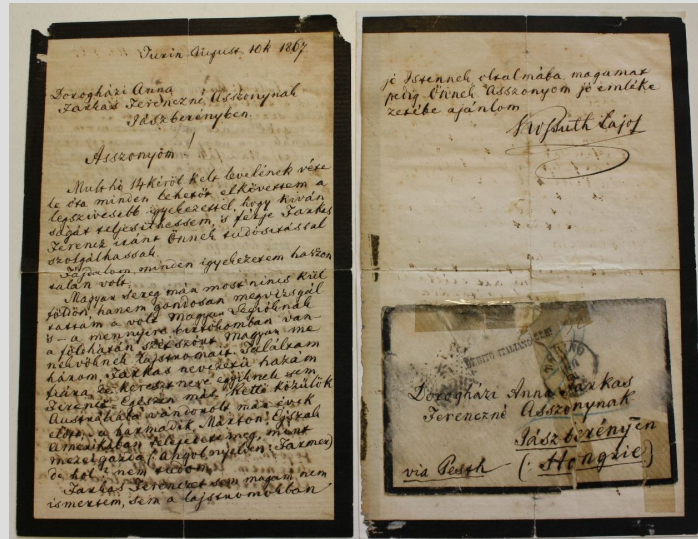 Turin August 10k 1867
Dorogházi Anna
Farkas Ferenczné Asszonynak
Jászberényben
Asszonyom!
Mult hó 14kéről kelt levelének véte
le óta minden lehetőt elkövettem a
legszivesebb igyekezettel, hogy kiván
ságát teljesithessem, 's férje Farkas
Ferencz iránt Önnek tudósitással
szolgálhassak.
Fájdalom, minden igyekezetem haszon
talan volt.
Magyar sereg már most nincs kül
földön, hanem gondosan megvizsgál
tattam a volt Magyar
is - a mennyire birtokomban van
a földhátán szétszórt Magyar me
nekvőknek lajstromait. Találtam
három Farkas nevezetű hazám
fiára, de keresztneve egyiknek sem
Ferencz. Egészen más. Kettő közülök
Australiába vándorolt már évek
előtt, a harmadik Márton Éjszak
Amerikában telepedett meg, mint
mezei gazda (: Angol nyelven: Farmer)
de hol? nem tudom.
Farkas Ferenczet sem magam nem
ismertem, sem a lajstromokban
jó Istennek oltalmába, magamat
pedig Önnek Asszonyom jó emléke
zetébe ajánlom
Kossuth Lajos
Dorogházi Anna Farkas
Ferenczné Asszonynak
Jászberényen
via Pesth
(: Hongrie)